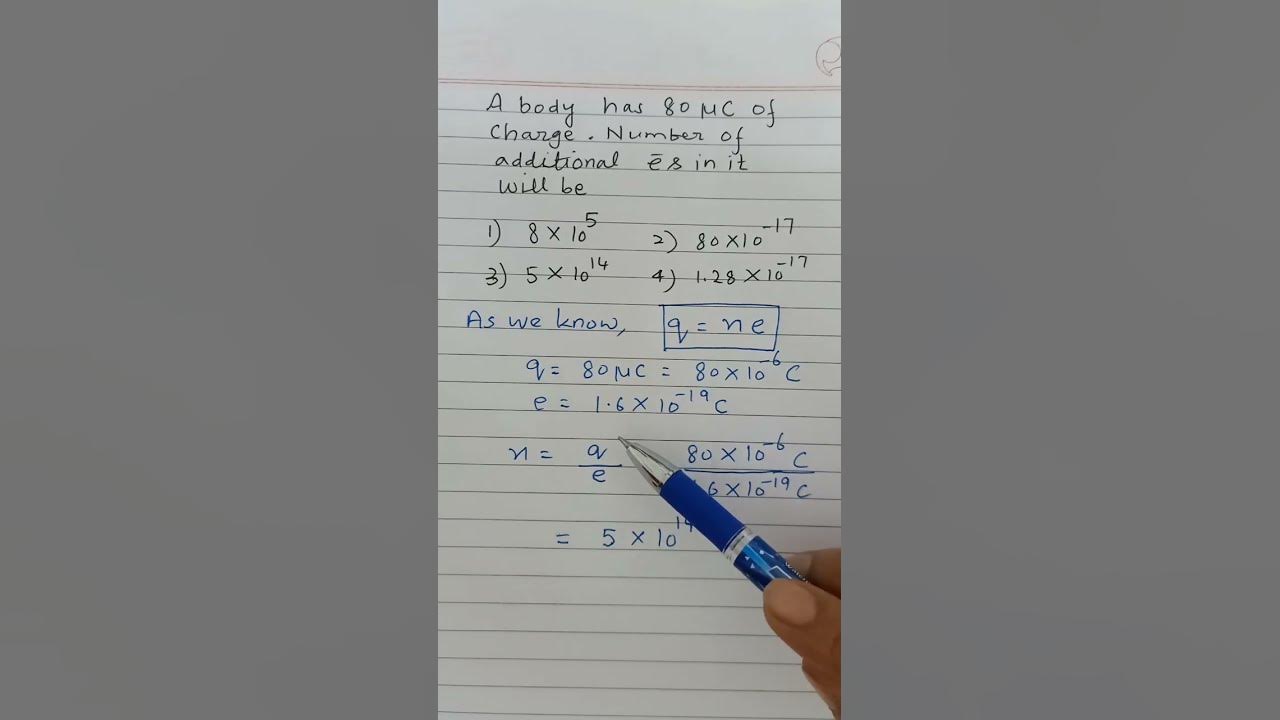 A body has 80 μC of
Charge. Number of
additional ēs in it
will be
1) 8 × 10⁵ 2) 80×10⁻¹⁷
3) 5 × 10¹⁴ 4) 1.28 × 10⁻¹⁷
As we know, q = ne
q = 80 μC = 80×10⁻⁶ C
e = 1.6 × 10⁻¹⁹ C
n = q/e 80 × 10⁻⁶ C / .6 × 10⁻¹⁹ C
= 5 × 10¹⁴